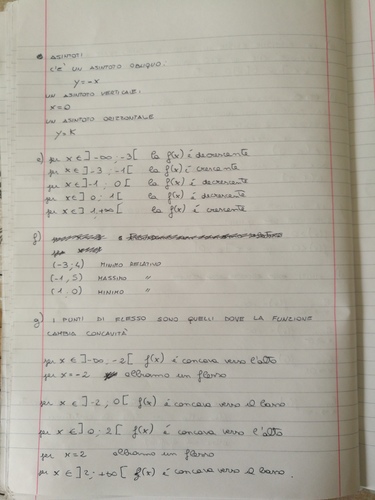 ASINTOTI
C'È UN ASINTOTO OBLIQUO.
y = -x
UN ASINTOTO VERTICALE:
x = 0
UN ASINTOTO ORIZZONTALE
y = K
e) per x ∈ ]-∞, -3[ la f(x) é decrescente
per x ∈ ]-3, -1[ la f(x) é crescente
per x ∈ ]-1, 0[ la f(x) é decrescente
per x ∈ ]0; 1[ la f(x) é decrescente
per x ∈ ]1, +∞[ la f(x) é crescente
f)
(-3; 4) MINIMO RELATIVO
(-1, 5) MASSIMO "
(1, 0) MINIMO "
g) I PUNTI DI FLESSO SONO QUELLI DOVE LA FUNZIONE
CAMBIA CONCAVITÀ
per x ∈ ]-∞, -2[ f(x) é concava verso l'alto
per x = -2 abbiamo un flesso
per x ∈ ]-2, 0[ f(x) é concava verso il basso
per x ∈ ]0; 2[ f(x) é concava verso l'alto
per x = 2 abbiamo un flesso
per x ∈ ]2; +∞[ f(x) é concava verso il basso.